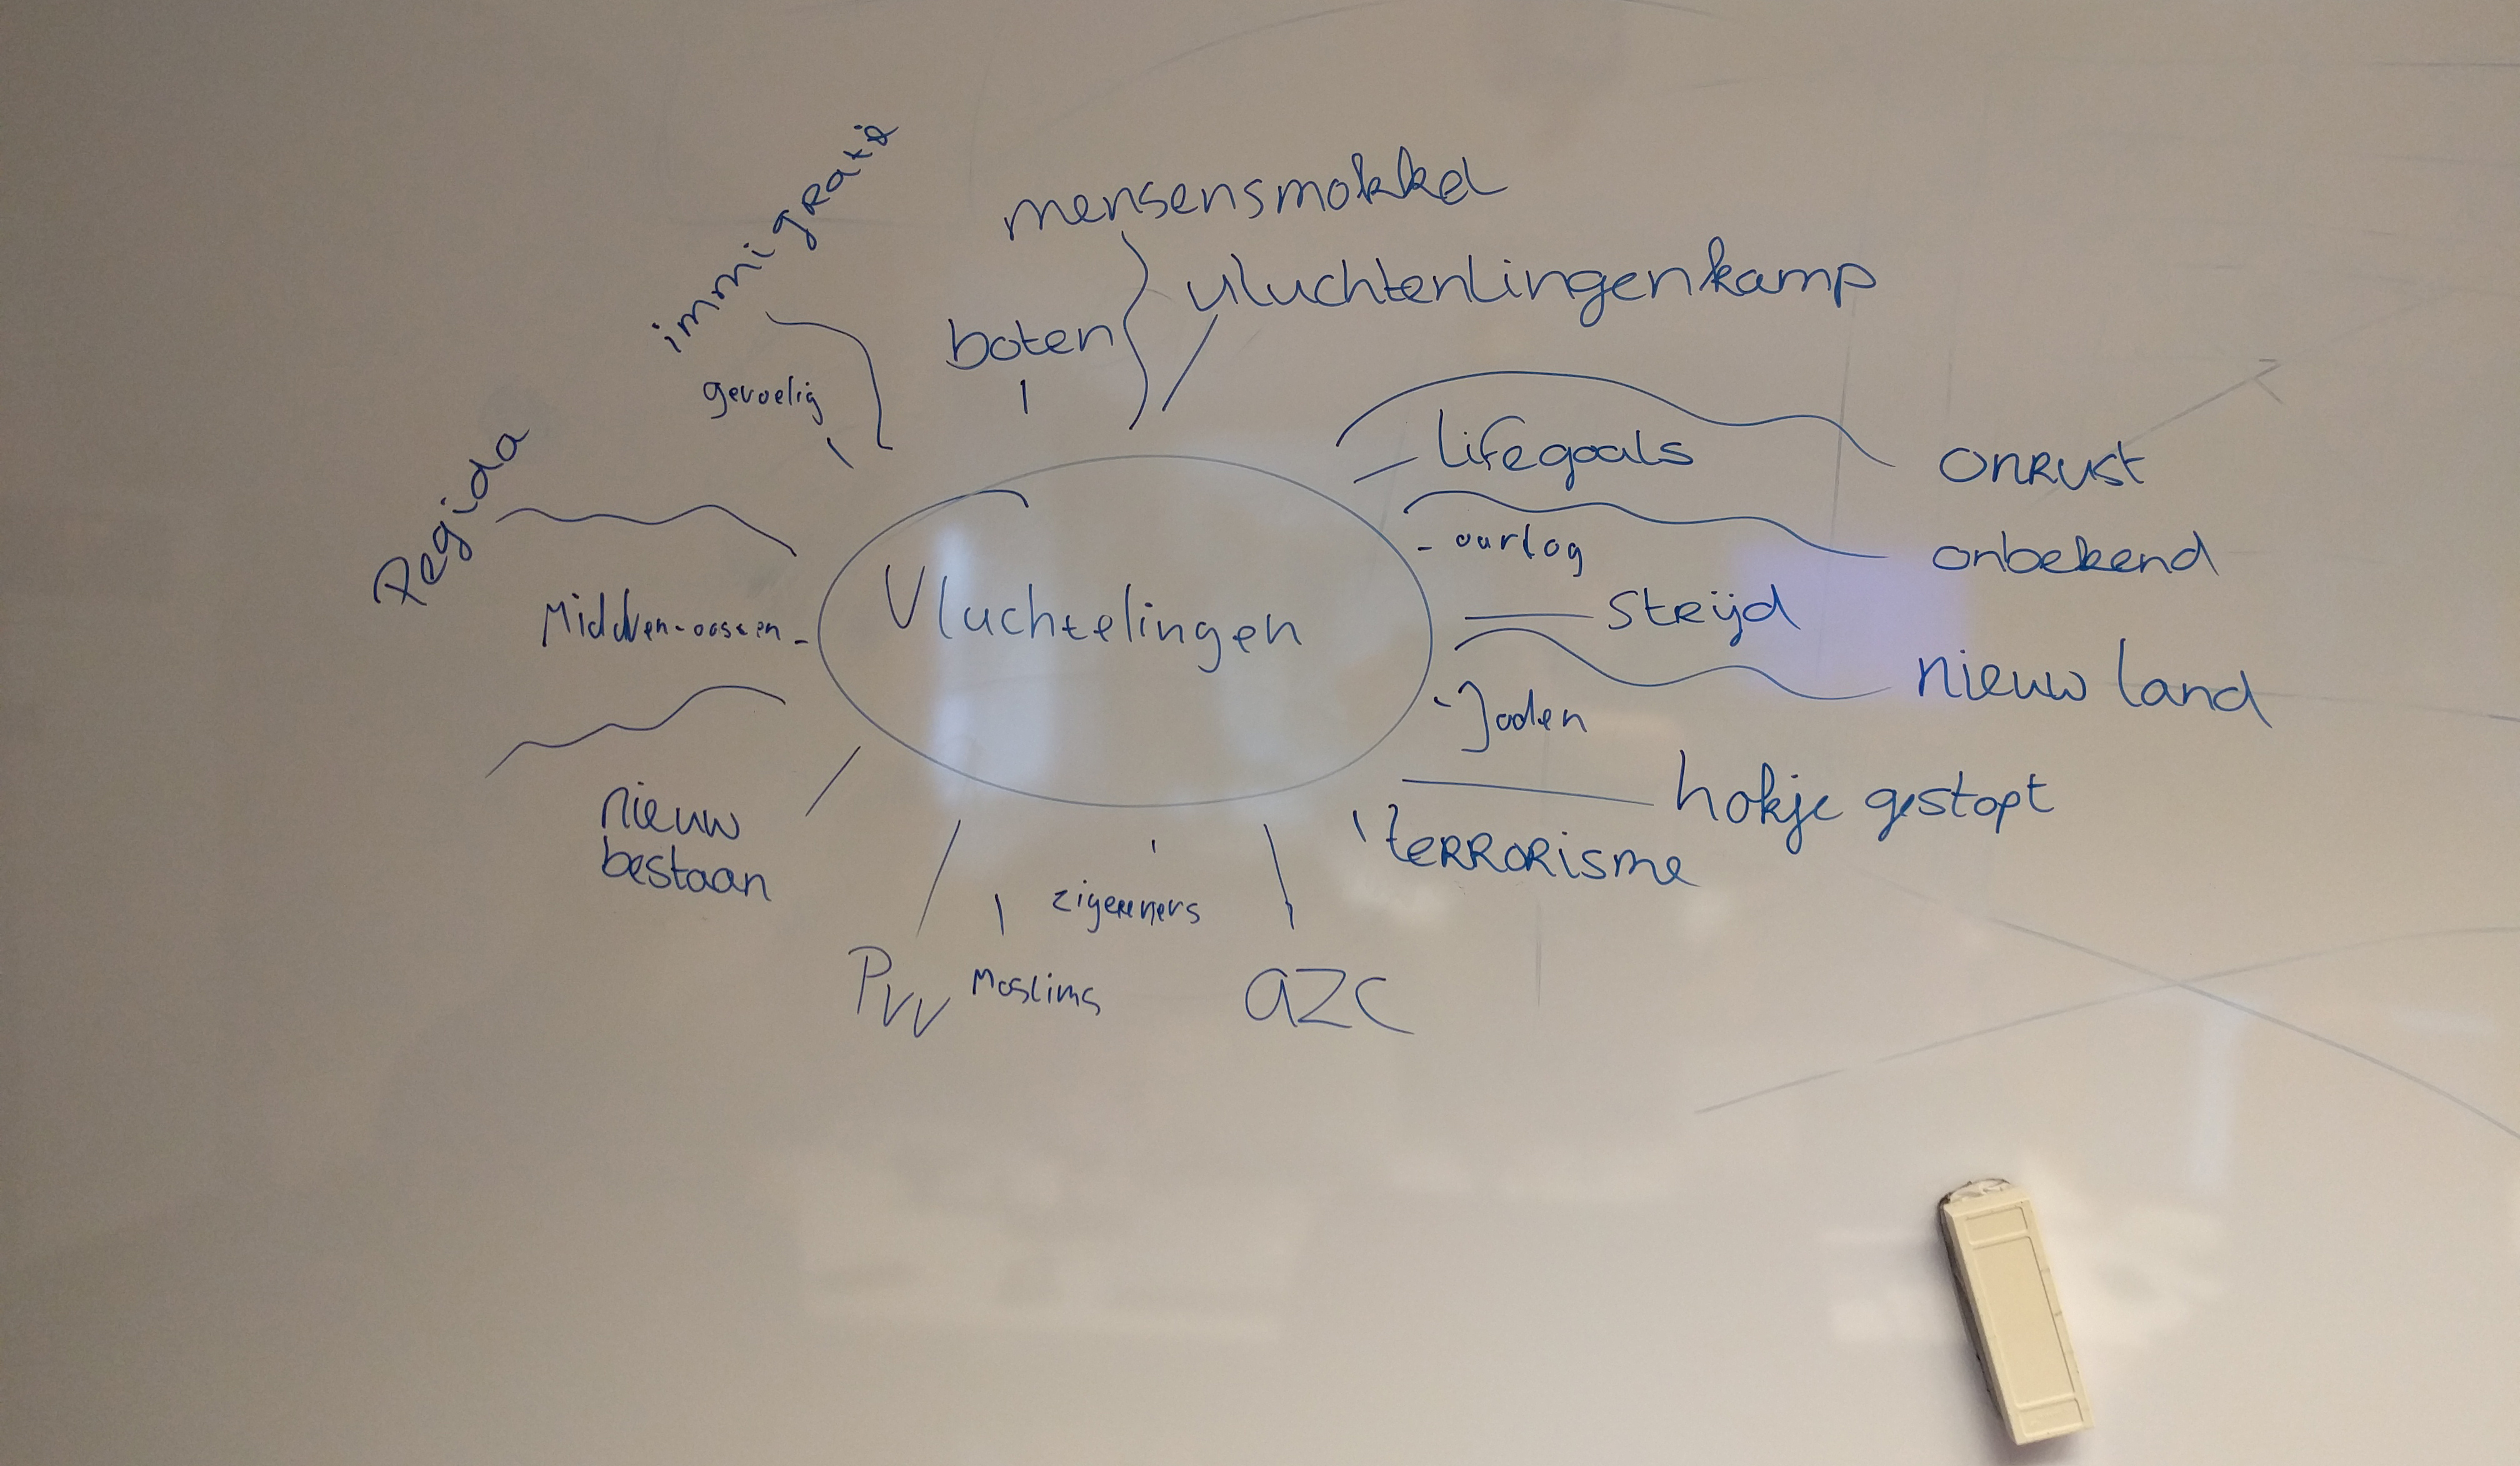 immigratie
mensensmokkel
vluchtenlingenkamp
boten
gevoelig
lifegoals
onrust
Pegida
oorlog
onbekend
Vluchtelingen
strijd
Midden-oosten
nieuw land
Joden
hokje gestopt
nieuw
bestaan
terrorisme
zigeuners
PVV
Moslims
azc